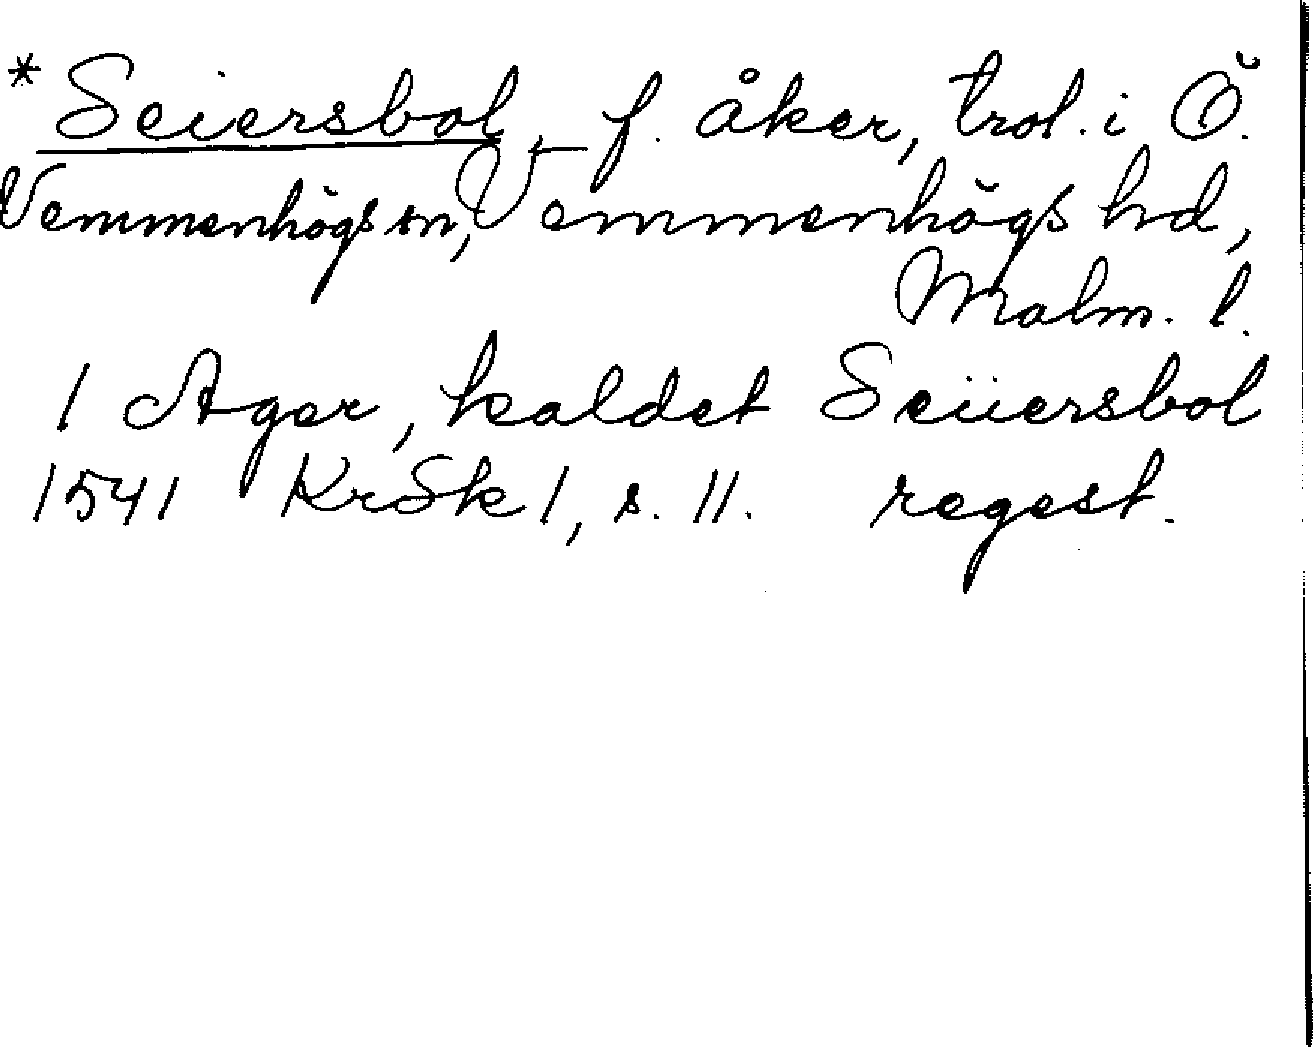 *Seiersbol, f. åker, trol. i Ö.
Vemmenhögs sn, Vemmenhögs hd,
Malm. l.
1 Ager, kaldet Seüersbol
1541 KrSk 1, s. 11. regest.